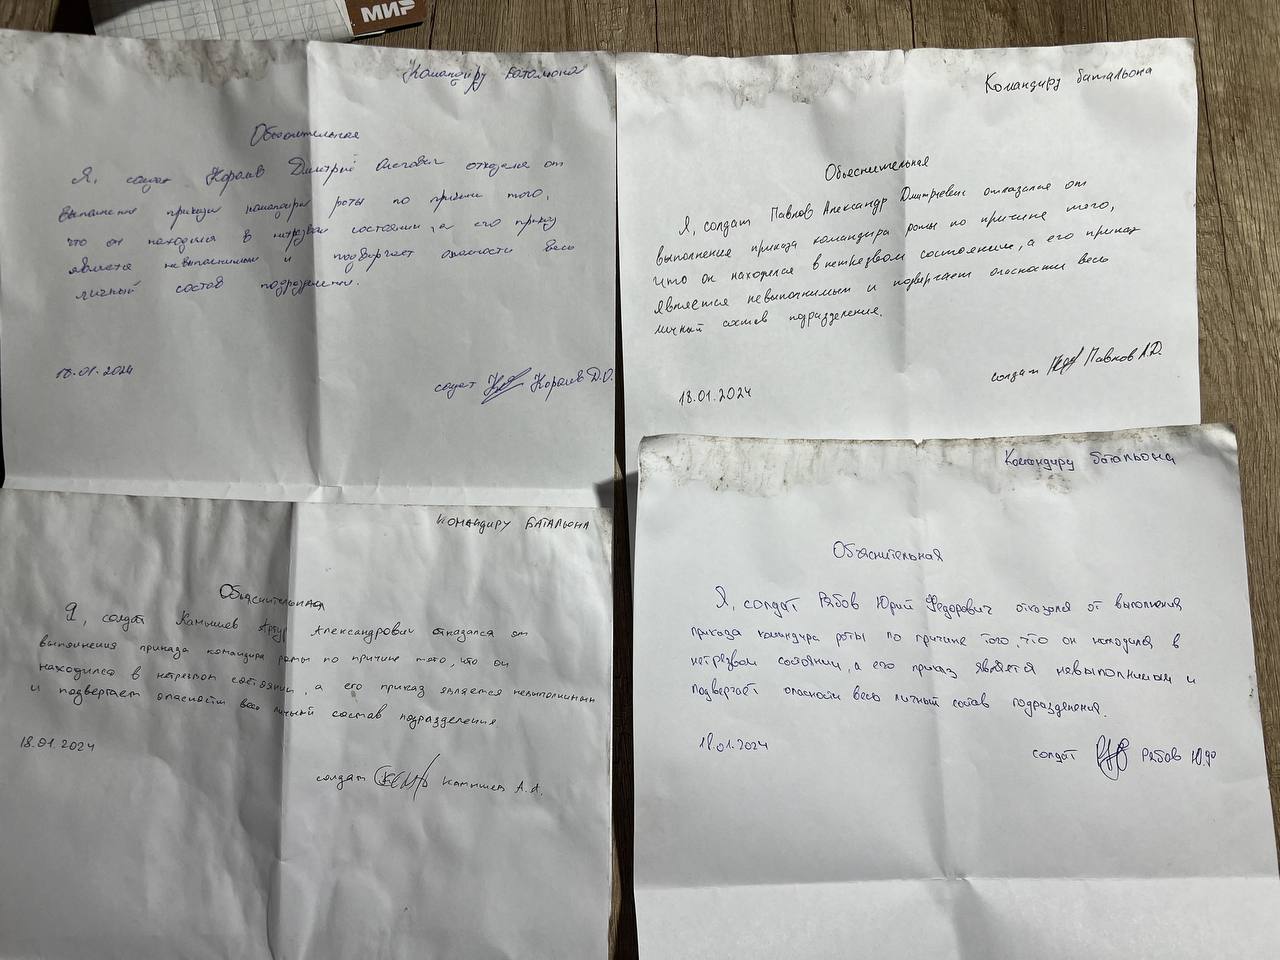 МИР
Командиру батальона
Объяснительная
Я, солдат Королев Дмитрий Олегович отказался от
выполнения приказа командира роты по причине того,
что он находился в нетрезвом состоянии, а его приказ
является невыполнимым и подвергает опасности весь
личный состав подразделения.
18.01.2024
солдат Королев Д.О.
Командиру батальона
Обьеснительная
Я, солдат Павлов Александр Дмитриевич отказался от
выполнение приказа командира роты по причине того,
что он находился в нетрезвом состоянии, а его приказ
является невыпочнимым и подвергает опасности весь
личный состав подразделения.
солдат Павлов А.Д.
18.01.2024
Командиру батальона
Объяснительная
Я, солдат Камышев Артур Александрович отказался от
выполнения приказа командира роты по причине того, что он
находился в нетрезвом состоянии, а его приказ является невыполнимым
и подвергает опасности весь личный состав подразделения
18.01.2024
солдат Камышев А.А.
Командиру батальона
Объяснительная
Я, солдат Рябов Юрий Федорович отказался от выполнения
приказа командира роты по причине того, что он находился в
нетрезвом состоянии, а его приказ является невыполнимым и
подвергает опасности весь личный состав подразделения.
18.01.2024
солдат Рябов Ю.Ф